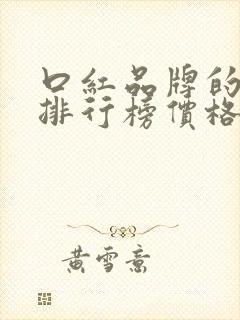 口紅品牌的
排行榜價格
黃雪意